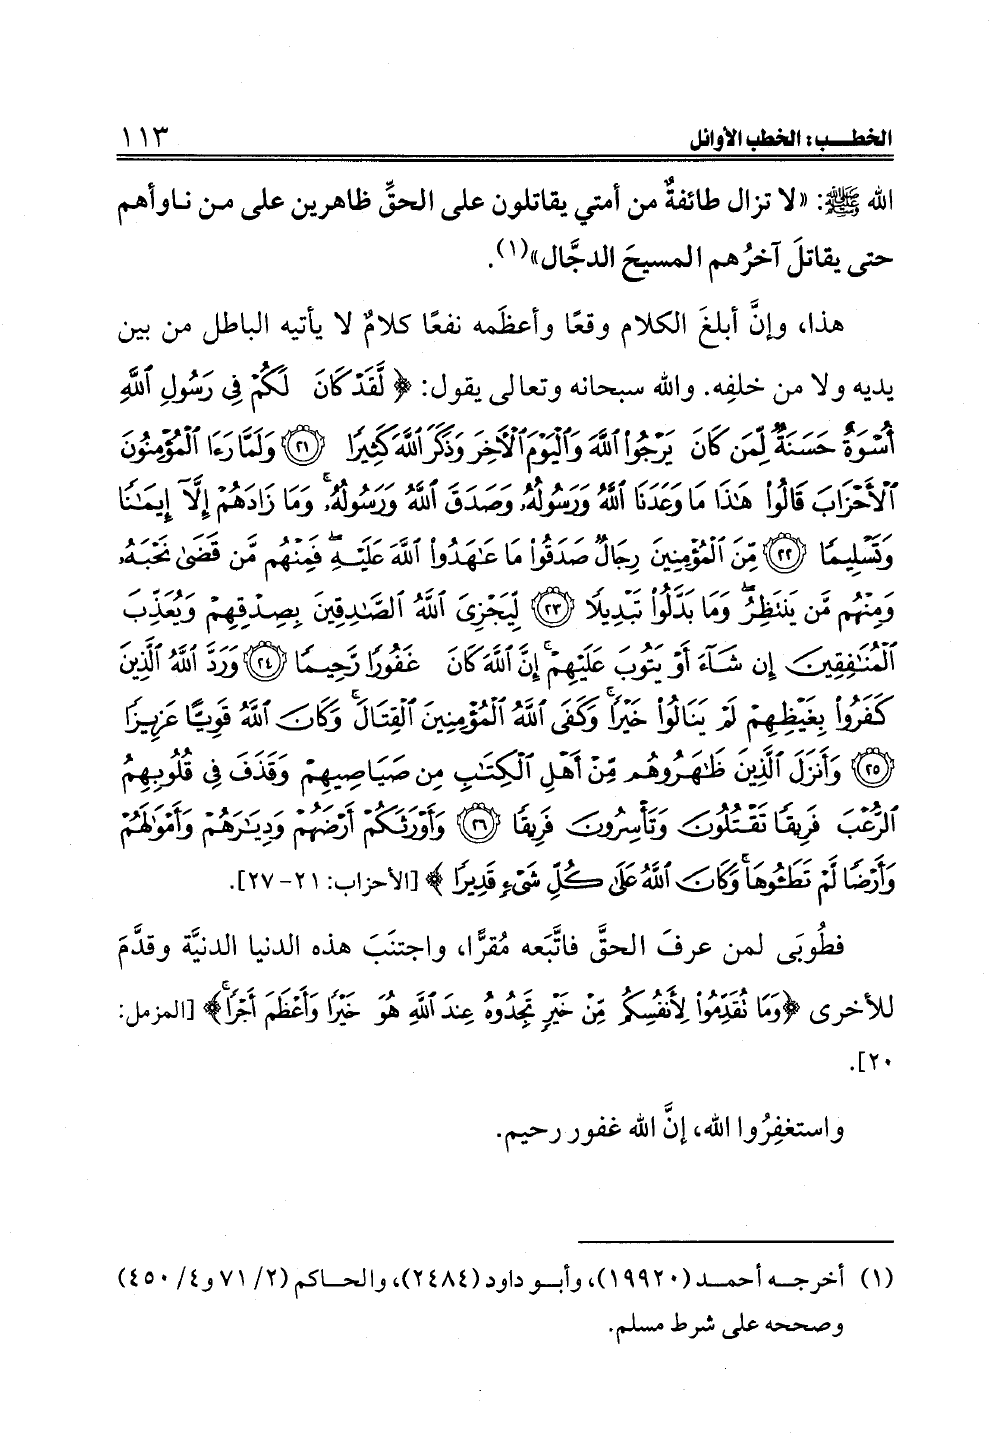 الخطـــب: الخطب الأوائل ١١٣
الله ﷺ: «لا تزال طائفةٌ من أمتي يقاتلون على الحقِّ ظاهرين على مـن نـاوأهم
حتى يقاتلَ آخرُهم المسيحَ الدجَّال»(١).
هذا، وإنَّ أبلغَ الكلام وقعًا وأعظَمه نفعًا كلامٌ لا يأتيه الباطل من بين
يديه ولا من خلفِه. والله سبحانه وتعالى يقول: ﴿ لَّقَدْ كَانَ لَكُمْ فِى رَسُولِ ٱللَّهِ
أُسْوَةٌ حَسَنَةٌ لِّمَن كَانَ يَرْجُوا۟ ٱللَّهَ وَٱلْيَوْمَ ٱلْـَٔاخِرَ وَذَكَرَ ٱللَّهَ كَثِيرًا ۝٢١ وَلَمَّا رَءَا ٱلْمُؤْمِنُونَ
ٱلْأَحْزَابَ قَالُوا۟ هَـٰذَا مَا وَعَدَنَا ٱللَّهُ وَرَسُولُهُۥ وَصَدَقَ ٱللَّهُ وَرَسُولُهُۥ ۚ وَمَا زَادَهُمْ إِلَّآ إِيمَـٰنًا
وَتَسْلِيمًا ۝٢٢ مِّنَ ٱلْمُؤْمِنِينَ رِجَالٌ صَدَقُوا۟ مَا عَـٰهَدُوا۟ ٱللَّهَ عَلَيْهِ ۖ فَمِنْهُم مَّن قَضَىٰ نَحْبَهُۥ
وَمِنْهُم مَّن يَنتَظِرُ ۖ وَمَا بَدَّلُوا۟ تَبْدِيلًا ۝٢٣ لِّيَجْزِىَ ٱللَّهُ ٱلصَّـٰدِقِينَ بِصِدْقِهِمْ وَيُعَذِّبَ
ٱلْمُنَـٰفِقِينَ إِن شَآءَ أَوْ يَتُوبَ عَلَيْهِمْ ۚ إِنَّ ٱللَّهَ كَانَ غَفُورًا رَّحِيمًا ۝٢٤ وَرَدَّ ٱللَّهُ ٱلَّذِينَ
كَفَرُوا۟ بِغَيْظِهِمْ لَمْ يَنَالُوا۟ خَيْرًا ۚ وَكَفَى ٱللَّهُ ٱلْمُؤْمِنِينَ ٱلْقِتَالَ ۚ وَكَانَ ٱللَّهُ قَوِيًّا عَزِيزًا
۝٢٥ وَأَنزَلَ ٱلَّذِينَ ظَـٰهَرُوهُم مِّنْ أَهْلِ ٱلْكِتَـٰبِ مِن صَيَاصِيهِمْ وَقَذَفَ فِى قُلُوبِهِمُ
ٱلرُّعْبَ فَرِيقًا تَقْتُلُونَ وَتَأْسِرُونَ فَرِيقًا ۝٢٦ وَأَوْرَثَكُمْ أَرْضَهُمْ وَدِيَـٰرَهُمْ وَأَمْوَٰلَهُمْ
وَأَرْضًا لَّمْ تَطَـُٔوهَا ۚ وَكَانَ ٱللَّهُ عَلَىٰ كُلِّ شَىْءٍ قَدِيرًا ﴾ [الأحزاب: ٢١-٢٧].
فطُوبَى لمن عرفَ الحقَّ فاتَّبعه مُقرًّا، واجتنَبَ هذه الدنيا الدنيَّة وقدَّمَ
للأخرى ﴿وَمَا تُقَدِّمُوا۟ لِأَنفُسِكُم مِّنْ خَيْرٍ تَجِدُوهُ عِندَ ٱللَّهِ هُوَ خَيْرًا وَأَعْظَمَ أَجْرًا ۚ﴾ [المزمل:
٢٠].
واستغفِرُوا الله، إنَّ الله غفور رحيم.
(١) أخرجـه أحمـد (١٩٩٢٠)، وأبـو داود (٢٤٨٤)، والحاكم (٢/ ٧١ و٤/ ٤٥٠)
وصححه على شرط مسلم.